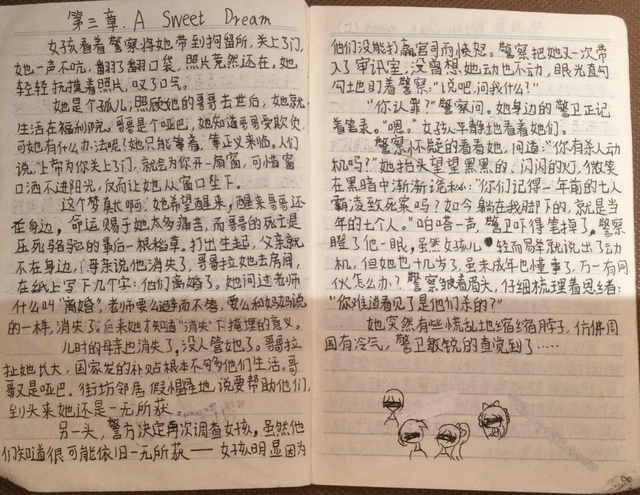 第三章. A Sweet Dream
女孩看着警察将她带到拘留所,关上了门,
她一声不吭,翻了翻口袋,照片竟然还在。她
轻轻抚摸着照片,叹了口气。
她是个孤儿,照顾她的哥哥去世后,她就
生活在福利院。哥哥是个哑巴,她知道哥哥受欺负,
可她有什么办法呢?她只能等着,等正义来临。人们
说,上帝为你关上了门,就会为你开一扇窗,可惜窗
口洒不进阳光,反而让她从窗口坠下。
这个梦真长啊,她希望醒来,醒来哥哥还
在身边,命运赐予她太多痛苦,而哥哥的死亡是
压死骆驼的最后一根稻草。打出生起,父亲就
不在身边,母亲说他消失了,哥哥拉她去房间,
在纸上写下几个字:他们离婚了。她问过老师
什么叫"离婚",老师要么避而不答,要么和妈妈说
的一样,消失了。后来她才知道"消失"下掩埋的意义。
儿时的母亲也消失了,没人管她了。哥哥拉
扯她长大,国家发的补贴根本不够他们生活。哥
哥又是哑巴。街坊邻居假惺惺地说要帮助他们,
到头来她还是一无所获。
另一头,警方决定再次调查女孩,虽然他
们知道很可能依旧一无所获——女孩明显因为
他们没能打赢官司而愤怒。警察把她又一次带
入了审讯室,没曾想,她动也不动,眼光直勾
勾地盯着警察:"说吧,问我什么?"
"你认罪?"警察问。她身边的警卫正记
着笔录。"嗯。"女孩平静地看着她们。
警察怀疑的看着她,问道:"你有杀人动
机吗?"她抬头望望黑黑的、闪闪的灯,微笑
在黑暗中渐渐沁:"你们记得一年前的七人
霸凌致死案吗?如今躺在我脚下的,就是当
年的七个人。"啪嗒一声,警卫吓得笔掉了,警察
瞪了他一眼,虽然女孩儿轻而易举就说出了动
机,但她也十几岁了,虽未成年也懂事了,万一有同
伙怎么办?警察皱着眉头,仔细梳理着思绪:
"你难道看见了是他们杀的?"
她突然有些慌乱地缩缩脖子,仿佛周
围有冷气,警卫敏锐的查觉到了……